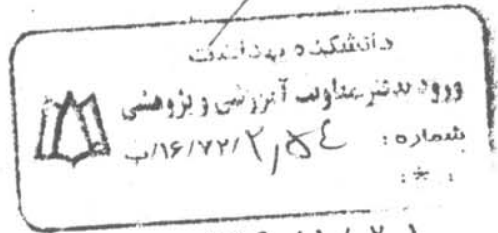 دانشکده بهداشت
ورود به دفتر معاونت آموزشی و پژوهشی
شماره : ۲٫۵۴ /۱۶/۷۲/ب